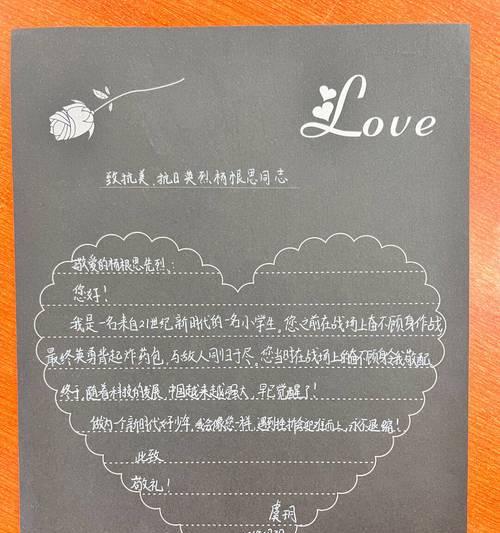 Love
致抗美、抗日英烈杨根思同志
敬爱的杨根思先烈:
您好!
我是一名来自21世纪新时代的一名小学生,您之前在战场上奋不顾身作战
最终英勇背起炸药包,与敌人同归于尽,您当时在战场上的奋不顾身令我敬配
终于,随着科技的发展,中国越来越强大,早已觉醒了!
做为一个新时代好少年,我会像您一样,遇到挫折会迎难而上,永不退缩!
此致
敬礼!
虞玥